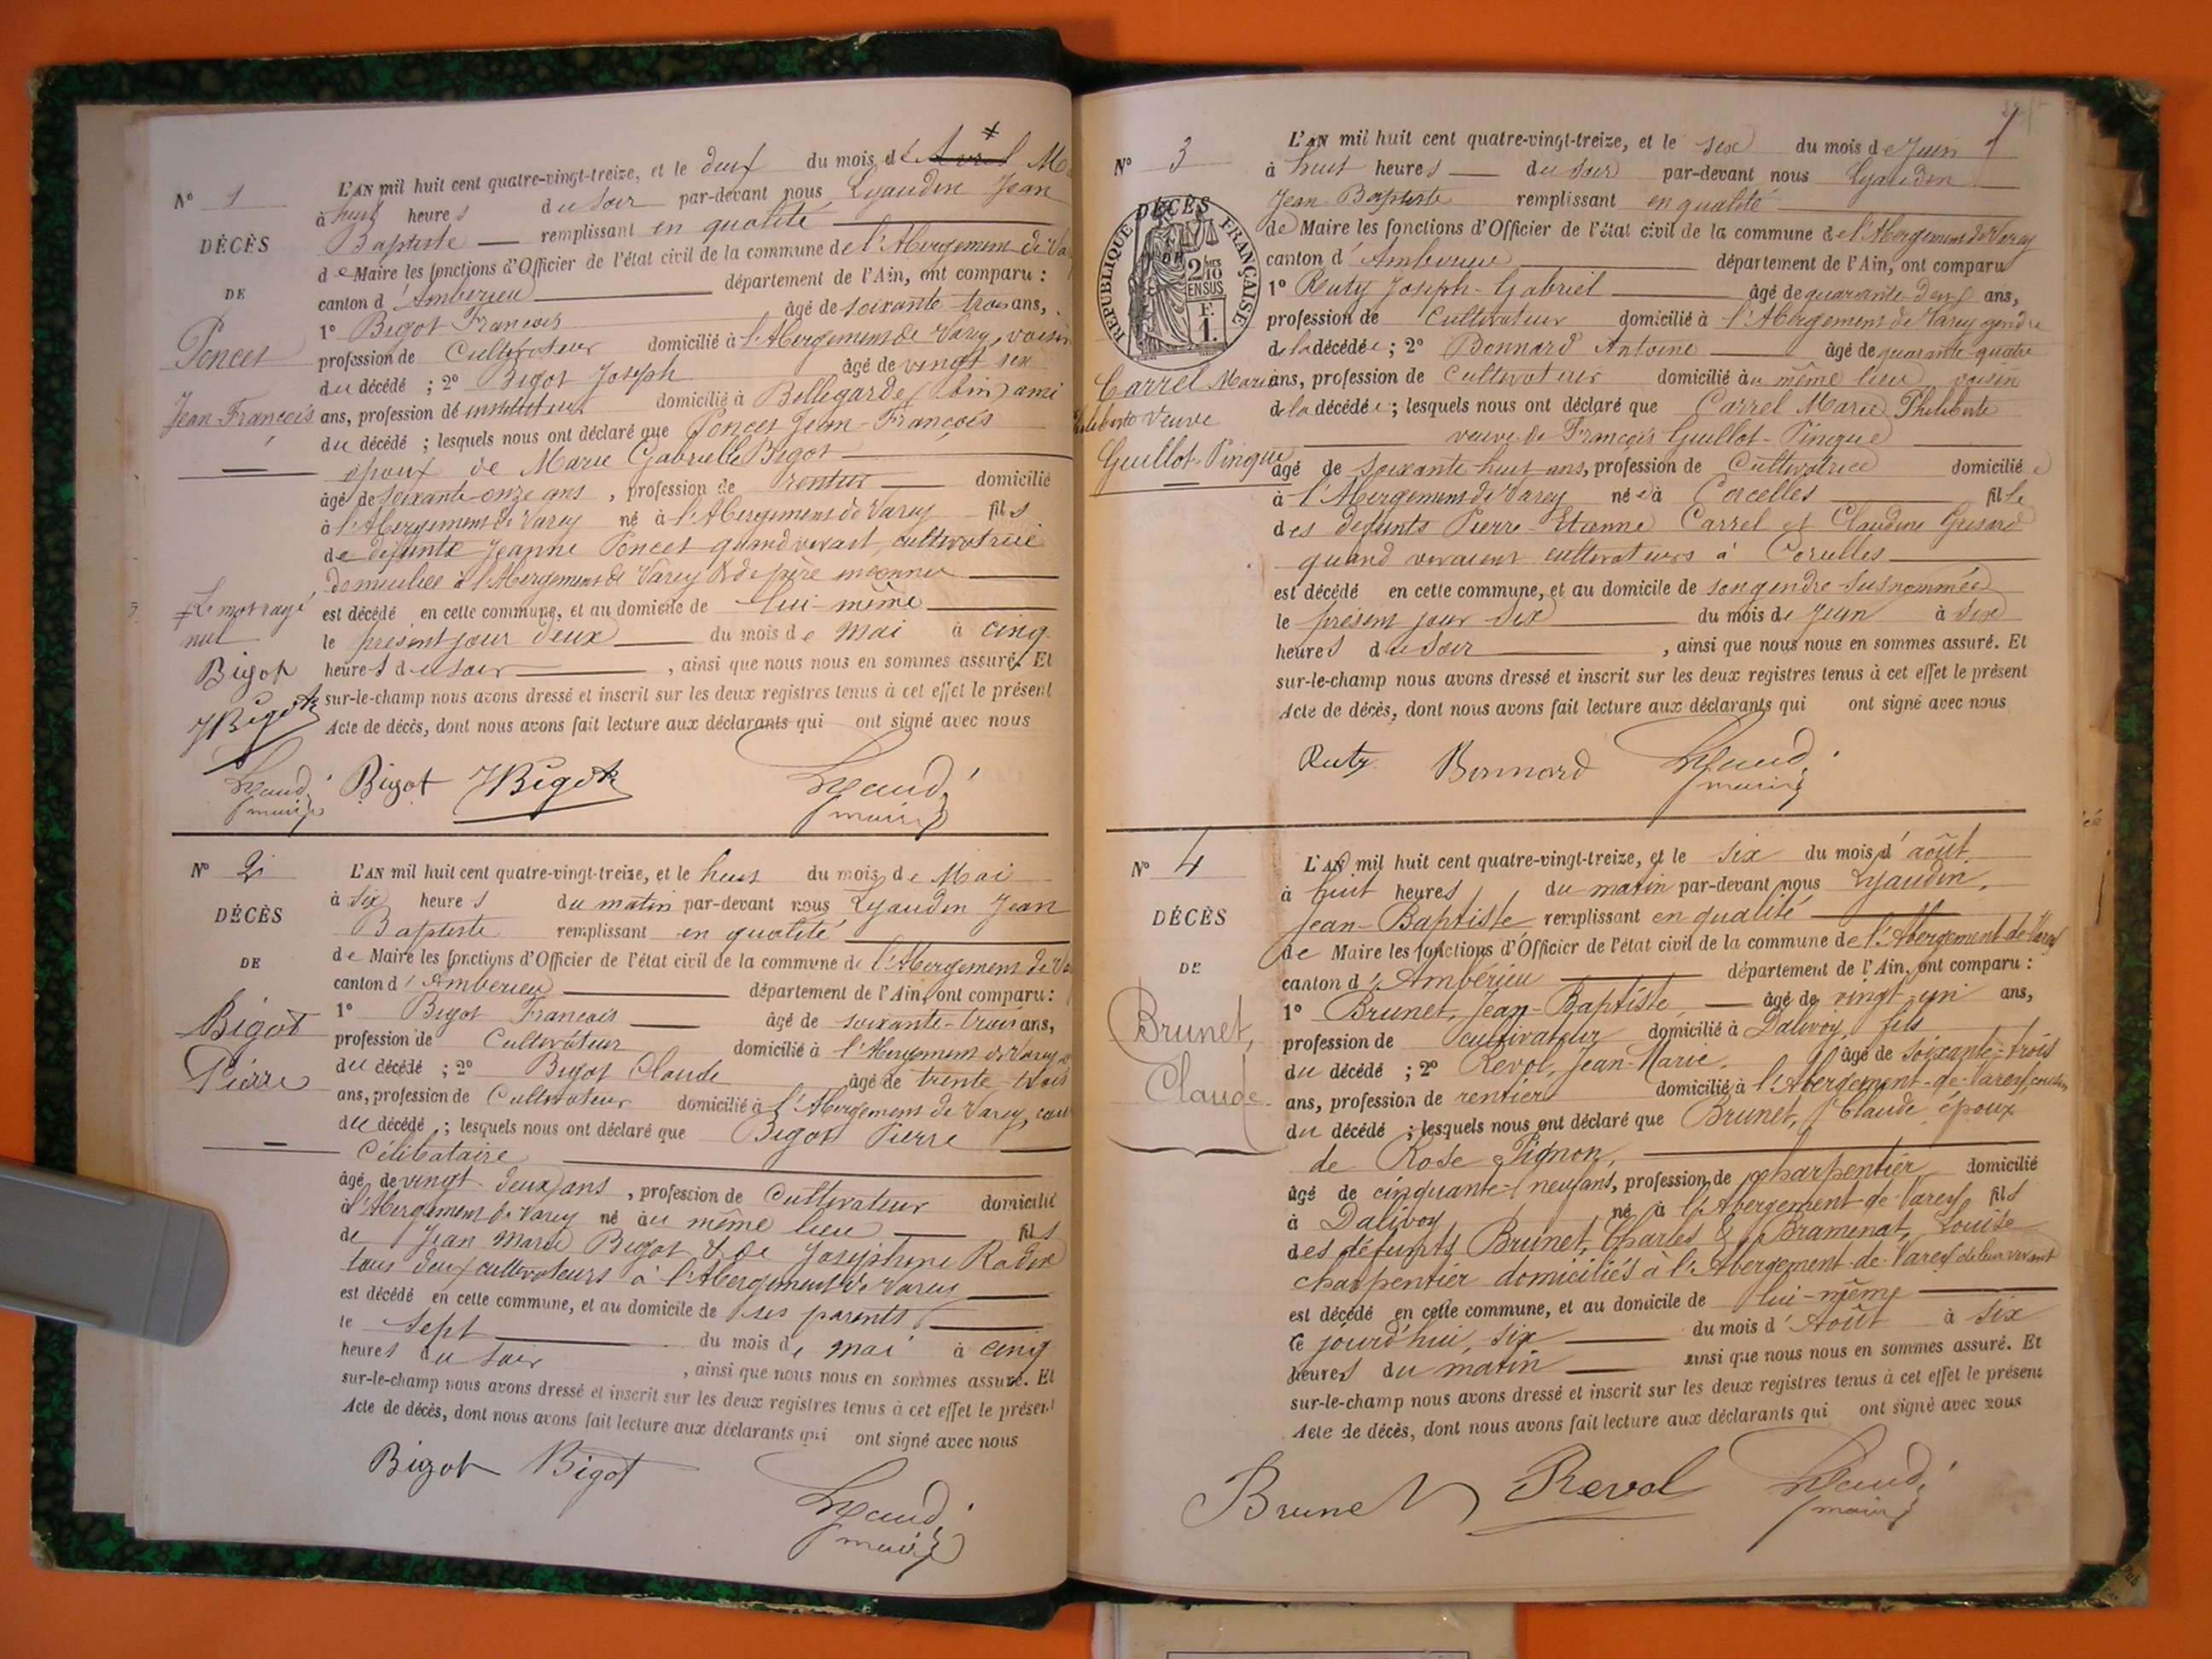 N° 1
DÉCÈS
DE
Poncet
Jean-François
L'AN mil huit cent quatre-vingt-treize, et le deux du mois de Avril
à huit heures du soir par-devant nous Lyaudin Jean
Baptiste remplissant en qualité
de Maire les fonctions d'Officier de l'état civil de la commune de l'Abergement de
canton d'Amberieu département de l'Ain, ont comparu :
1° Bigot François âgé de soixante trois ans,
profession de Cultivateur domicilié à l'Abergement de Varey, voisin
du décédé ; 2° Bigot Joseph âgé de vingt six
ans, profession de instituteur domicilié à Bellegarde (Ain) ami
du décédé ; lesquels nous ont déclaré que Poncet Jean-François
époux de Marie Gabrielle Bigot
âgé de soixante-onze ans, profession de rentier domicilié
à l'Abergement de Varey né à l'Abergement de Varey fils
de défunte Jeanne Poncet quand vivait, cultivatrice
domiciliée à l'Abergement de Varey & de père inconnu
est décédé en cette commune, et au domicile de lui-même
le présent jour deux du mois de mai à cinq
heures du soir, ainsi que nous nous en sommes assuré. Et
sur-le-champ nous avons dressé et inscrit sur les deux registres tenus à cet effet le présent
Acte de décès, dont nous avons fait lecture aux déclarants qui ont signé avec nous
Le mot rayé
nul
Bigot
JBigot
Lyaud.
maire
Bigot JBigot Lyaud.
maire
N° 2
DÉCÈS
DE
Bigot
Pierre
L'AN mil huit cent quatre-vingt-treize, et le huit du mois de Mai
à six heures du matin par-devant nous Lyaudin Jean
Baptiste remplissant en qualité
de Maire les fonctions d'Officier de l'état civil de la commune de l'Abergement de
canton d'Amberieu département de l'Ain, ont comparu :
1° Bigot François âgé de soixante-trois ans,
profession de Cultivateur domicilié à l'Abergement de Varey
du décédé ; 2° Bigot Claude âgé de trente-trois
ans, profession de Cultivateur domicilié à l'Abergement de Varey,
du décédé ; lesquels nous ont déclaré que Bigot Pierre
Célibataire
âgé de vingt deux ans, profession de Cultivateur domicilié
à l'Abergement de Varey né au même lieu fils
de Jean Marie Bigot & de Josephine Rodix
tous deux cultivateurs à l'Abergement de Varey
est décédé en cette commune, et au domicile de ses parents
le sept du mois de mai à cinq
heures du soir, ainsi que nous nous en sommes assuré. Et
sur-le-champ nous avons dressé et inscrit sur les deux registres tenus à cet effet le présent
Acte de décès, dont nous avons fait lecture aux déclarants qui ont signé avec nous
Bigot Bigot
Lyaud.
maire
N° 3
RÉPUBLIQUE FRANÇAISE
2/10 EN SUS
F. 1.
DÉCÈS
DE
Carrel Marie
Philiberte Veuve
Guillot-Pingue
L'AN mil huit cent quatre-vingt-treize, et le six du mois de Juin
à huit heures du soir par-devant nous Lyaudin
Jean Baptiste remplissant en qualité
de Maire les fonctions d'Officier de l'état civil de la commune de l'Abergement de Varey
canton d'Amberieu département de l'Ain, ont comparu
1° Ruty Joseph-Gabriel âgé de quarante-deux ans,
profession de Cultivateur domicilié à l'Abergement de Varey gendre
de la décédée ; 2° Bonnard Antoine âgé de quarante-quatre
ans, profession de Cultivateur domicilié au même lieu voisin
de la décédée ; lesquels nous ont déclaré que Carrel Marie Philiberte
veuve de François Guillot-Pingue
âgé de soixante huit ans, profession de Cultivatrice domiciliée
à l'Abergement de Varey née à Corcelles fille
des défunts Pierre-Etienne Carrel et Claudine
quand vivaient cultivateurs à Corcelles
est décédé en cette commune, et au domicile de son gendre susnommée
le présent jour six du mois de Juin à six
heures du soir, ainsi que nous nous en sommes assuré. Et
sur-le-champ nous avons dressé et inscrit sur les deux registres tenus à cet effet le présent
Acte de décès, dont nous avons fait lecture aux déclarants qui ont signé avec nous
Ruty Bonnard Lyaud.
maire
N° 4
DÉCÈS
DE
Brunet,
Claude
L'AN mil huit cent quatre-vingt-treize, et le six du mois d'août
à huit heures du matin par-devant nous Lyaudin,
Jean-Baptiste remplissant en qualité
de Maire les fonctions d'Officier de l'état civil de la commune de l'Abergement-de-Varey
canton d'Ambérieu département de l'Ain, ont comparu :
1° Brunet, Jean-Baptiste âgé de vingt-un ans,
profession de cultivateur domicilié à Dalivoy, fils
du décédé ; 2° Revol, Jean-Marie. âgé de soixante-trois
ans, profession de rentier domicilié à l'Abergement-de-Varey, cousin
du décédé ; lesquels nous ont déclaré que Brunet, Claude, époux
de Rose Pignon,
âgé de cinquante-neuf ans, profession de charpentier domicilié
à Dalivoy né à l'Abergement-de-Varey fils
des défunts Brunet, Charles & Bramenat, Louise
charpentier domiciliés à l'Abergement-de-Varey de leur vivant
est décédé en cette commune, et au domicile de lui-même
ce jourd'hui, six du mois d'Août à six
heures du matin ainsi que nous nous en sommes assuré. Et
sur-le-champ nous avons dressé et inscrit sur les deux registres tenus à cet effet le présent
Acte de décès, dont nous avons fait lecture aux déclarants qui ont signé avec nous
Brunet Revol Lyaud.
maire